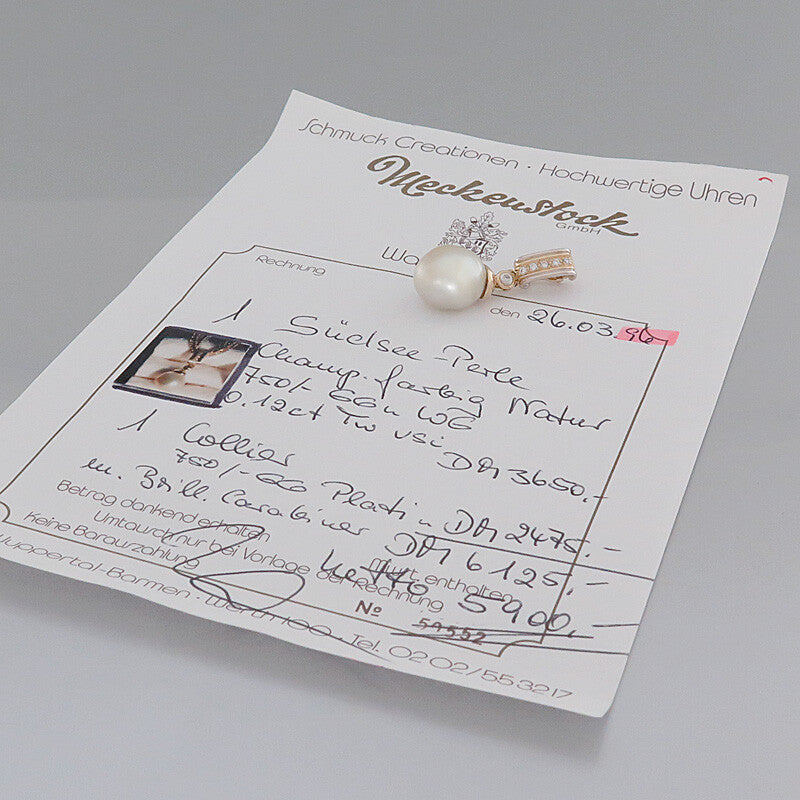 Schmuck Creationen · Hochwertige Uhren
Meckenstock
GmbH
Rechnung
den 26.03.96
1 Südsee-Perle
Champ. farbig Natur
750/- GG u WG
0.12ct Tw vsi DM 3650.-
1 Collier
750/- GG Platin DM 2475.-
m. Brill. Carabiner DM 6125.-
Betrag dankend erhalten
Umtausch nur bei Vorlage der Rechnung
Keine Barauszahlung
MWSt. enthalten
5900.-
No 59552
Wuppertal-Barmen · Werth 100 · Tel. 0202/553217